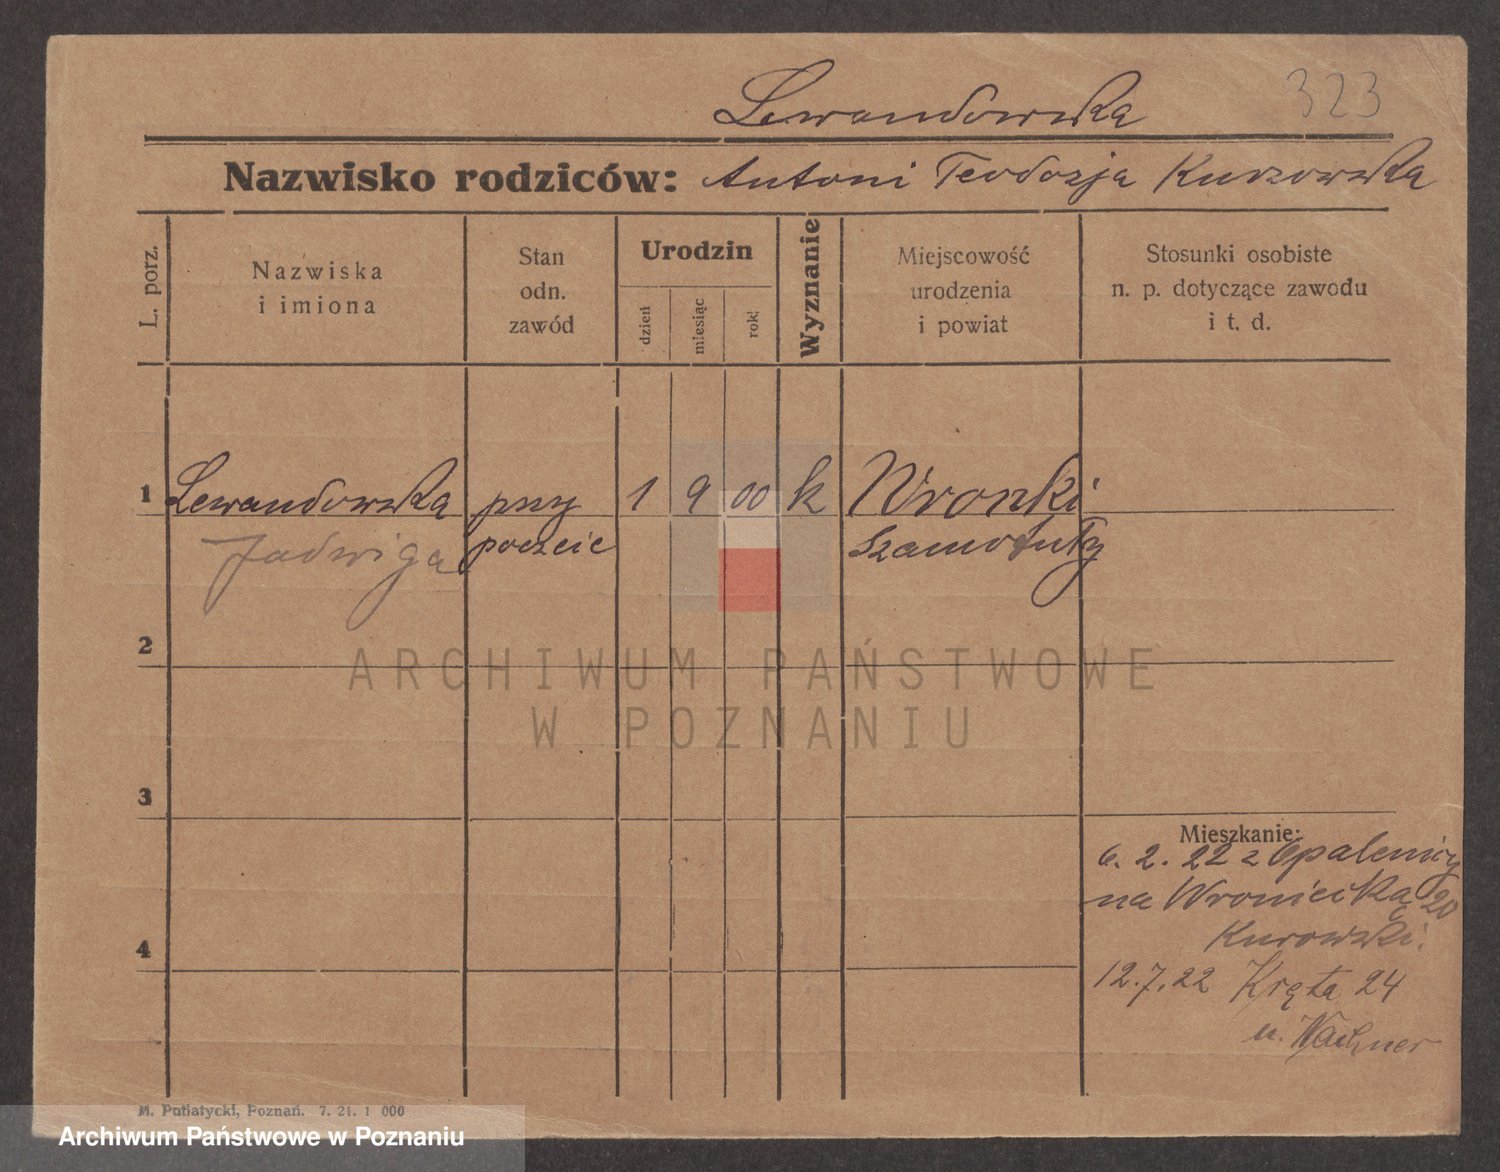 323
Lewandowska
Nazwisko rodziców: Antoni Teodozja Kurzowska
L. porz.
Nazwiska
i imiona
Stan
odn.
zawód
Urodzin
dzień
miesiąc
rok
Wyznanie
Miejscowość
urodzenia
i powiat
Stosunki osobiste
n. p. dotyczące zawodu
i t. d.
1 Lewandowska przy 1 9 00 k Wronki
Jadwiga poczcie Szamotuły
2
ARCHIWUM PAŃSTWOWE
W POZNANIU
3
Mieszkanie:
6. 2. 22 z Opalenicy
na Wroniecka 20
Kurowski.
4
12.7.22 Kręta 24
u. Wachner
M. Putiatycki, Poznań. 7. 21. 1 000
Archiwum Państwowe w Poznaniu